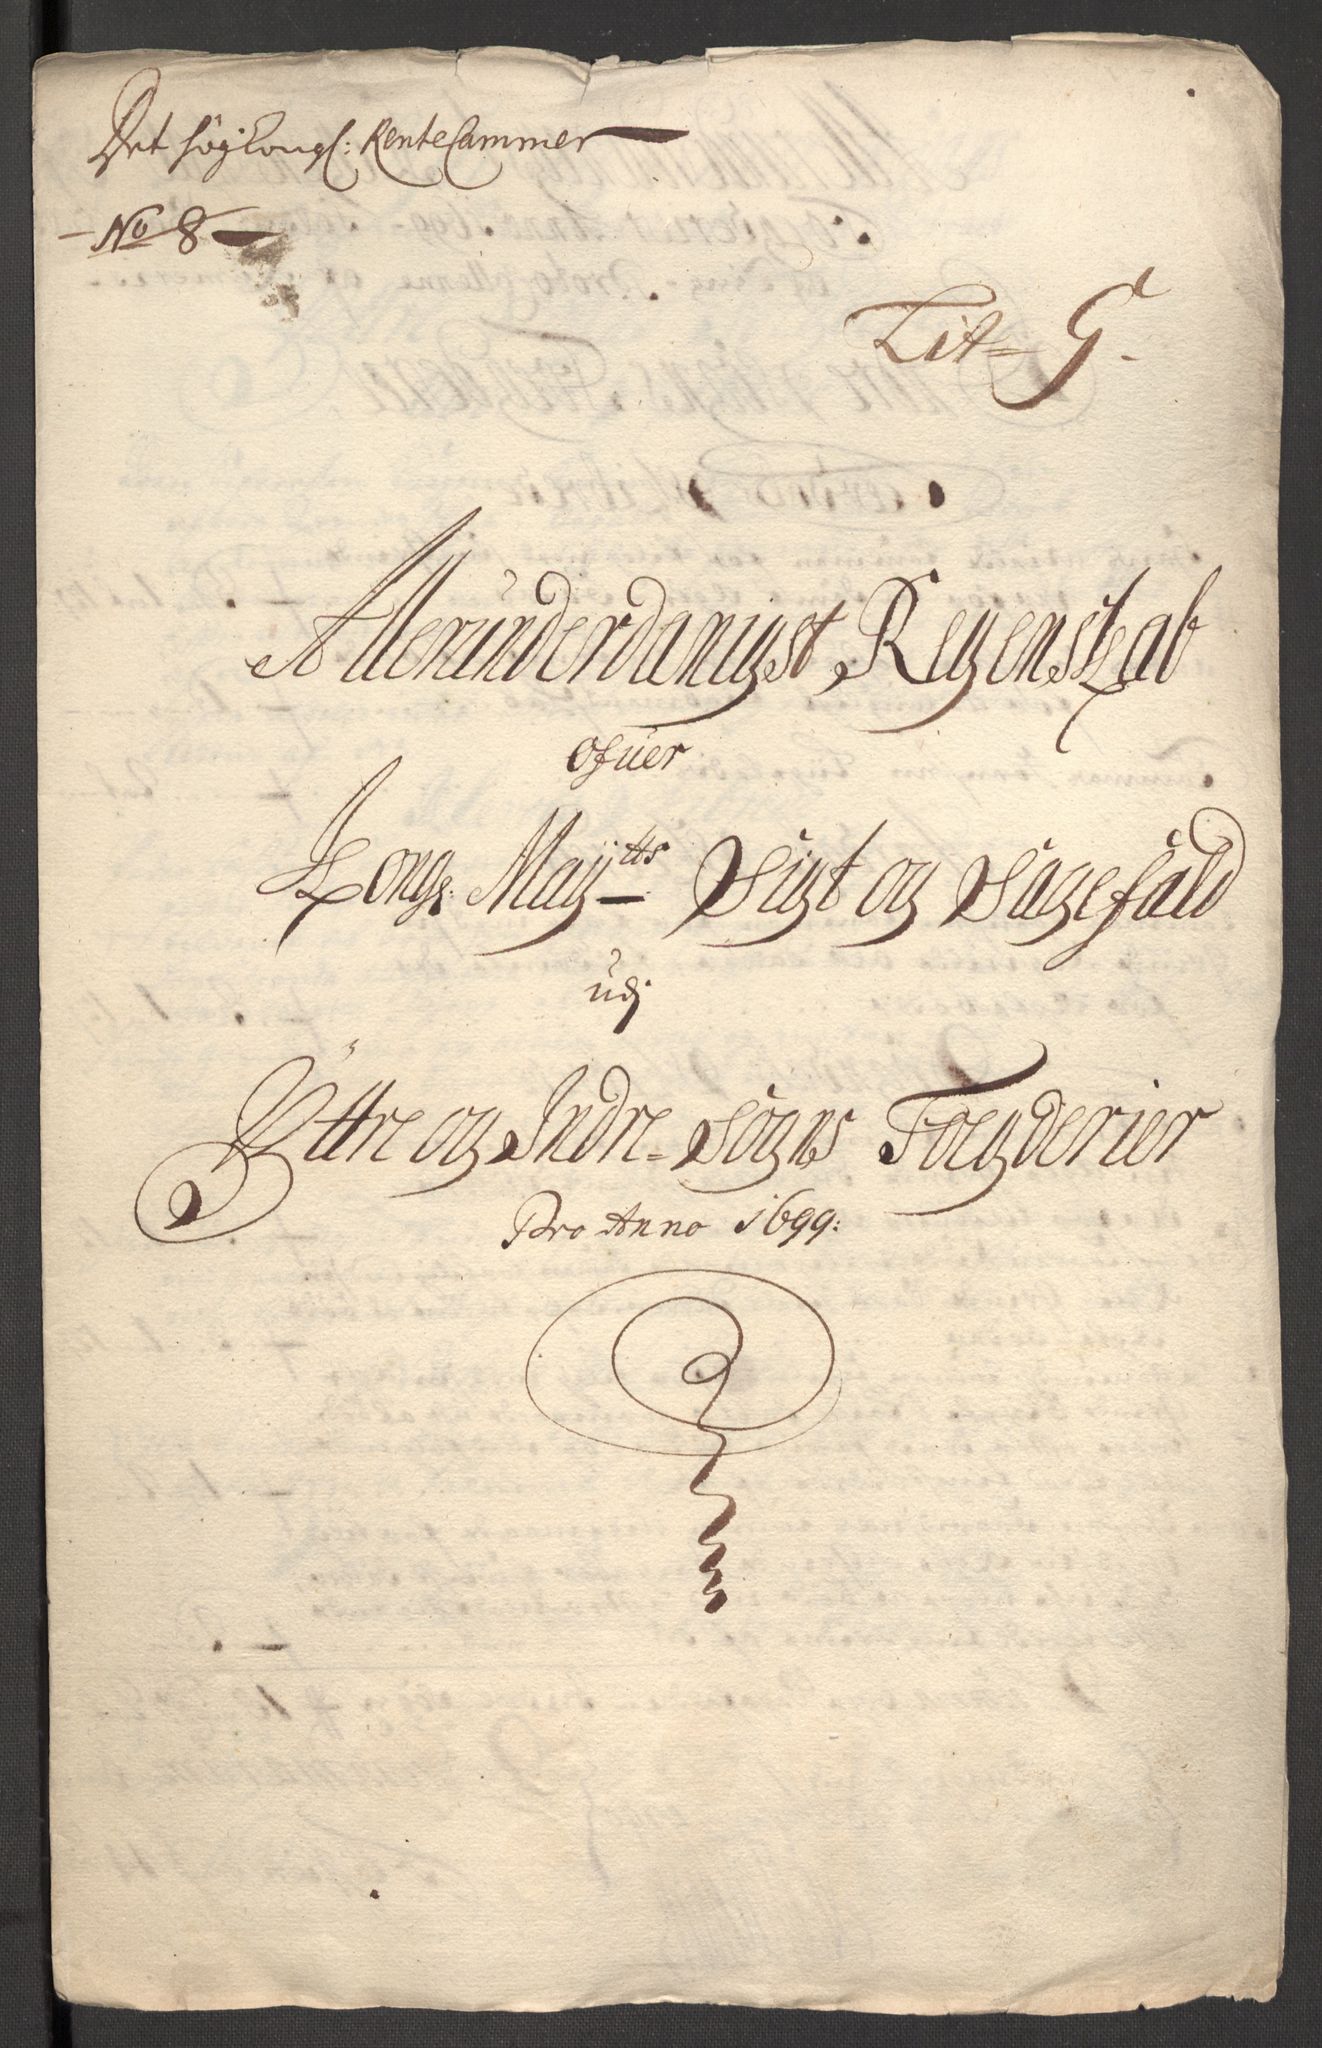 Det høyKongl: RenteCammer
No 8
Lit= G.
Allerunderdanigst Regenskab
ofuer
Kongl: Mayᵗᵗˢ Sigt og Sagefald
udj
Yttre og Indre= Sogns Foegderier
Pro Anno 1699: